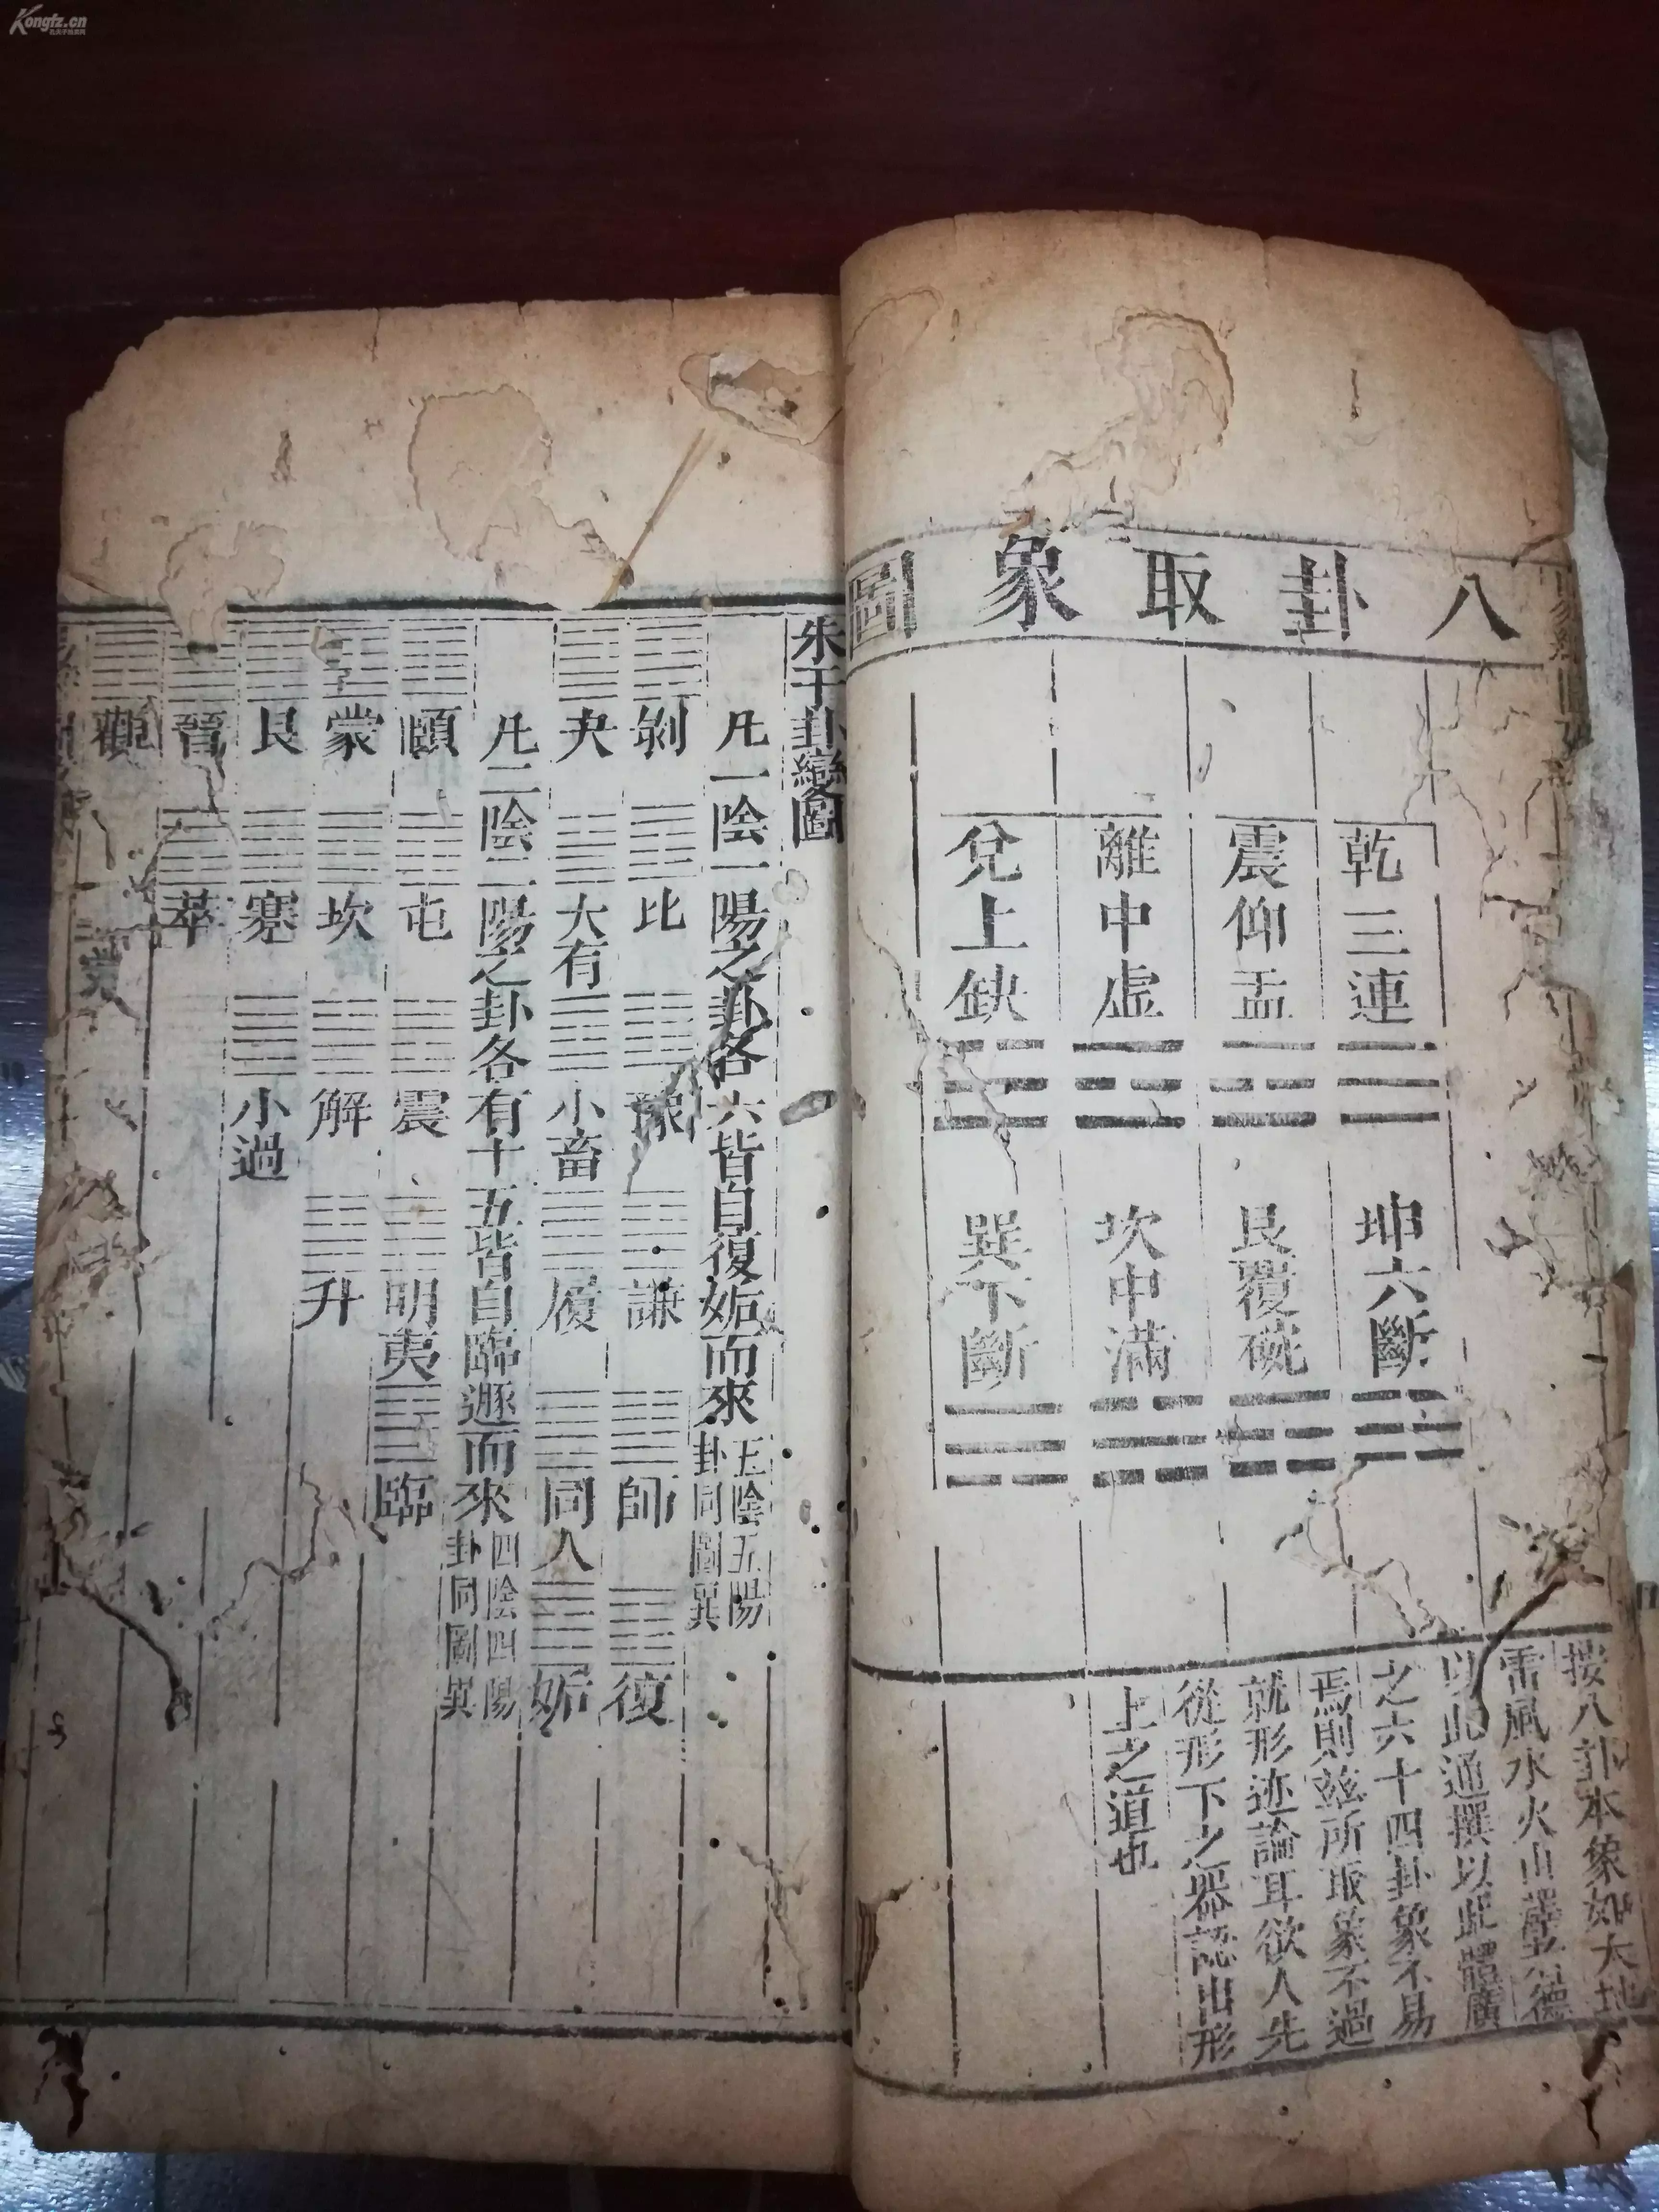 Kongfz.cn
八卦取象圖
乾三連
坤六斷
震仰盂
艮覆碗
離中虛
坎中滿
兌上缺
巽下斷
按八卦本象如天地
雷風水火山
德
以此通撰以此體廣
之六十四卦象不易
焉則玆所取象不過
就形迹論耳欲人先
從形下之器認出形
上之道也
朱子卦變圖
凡一陰一陽之卦各六皆自復姤而來
五陰五陽
卦同圖異
剝 比 豫 謙 師 復
夬 大有 小畜 履 同人 姤
凡二陰二陽之卦各有十五皆自臨遯而來
四陰四陽
卦同圖異
頤 屯 震 明夷 臨
蒙 坎 解 升
艮 蹇 小過
晉 萃
觀